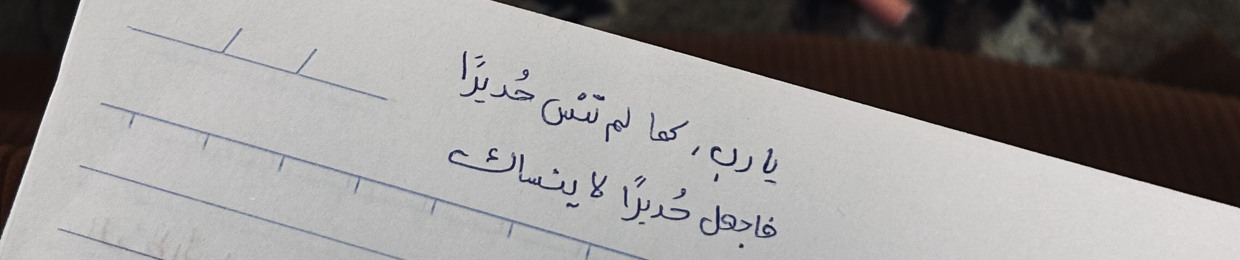 يا رب، كما لم تنْس حُديرًا
فاجعل حُديرًا لا ينساك